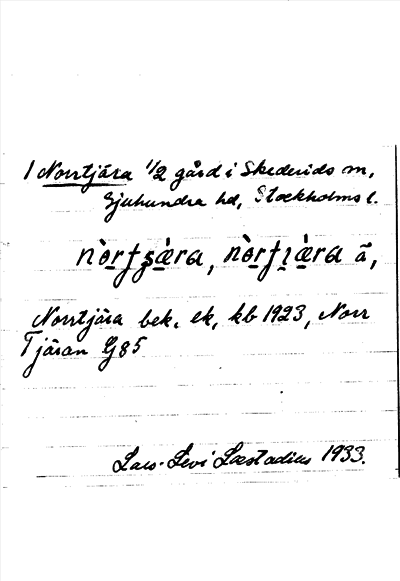 1 Norrtjära 1/2 gård i Skederids sn,
Sjuhundra hd, Stockholms l.
nò̱rʈʂæ̀ra, nò̱rʈɪæ̀ra ã,
Norrtjära bek. ek, kb 1923, Norr
Tjäran G85
Lars-Levi Læstadius 1933.